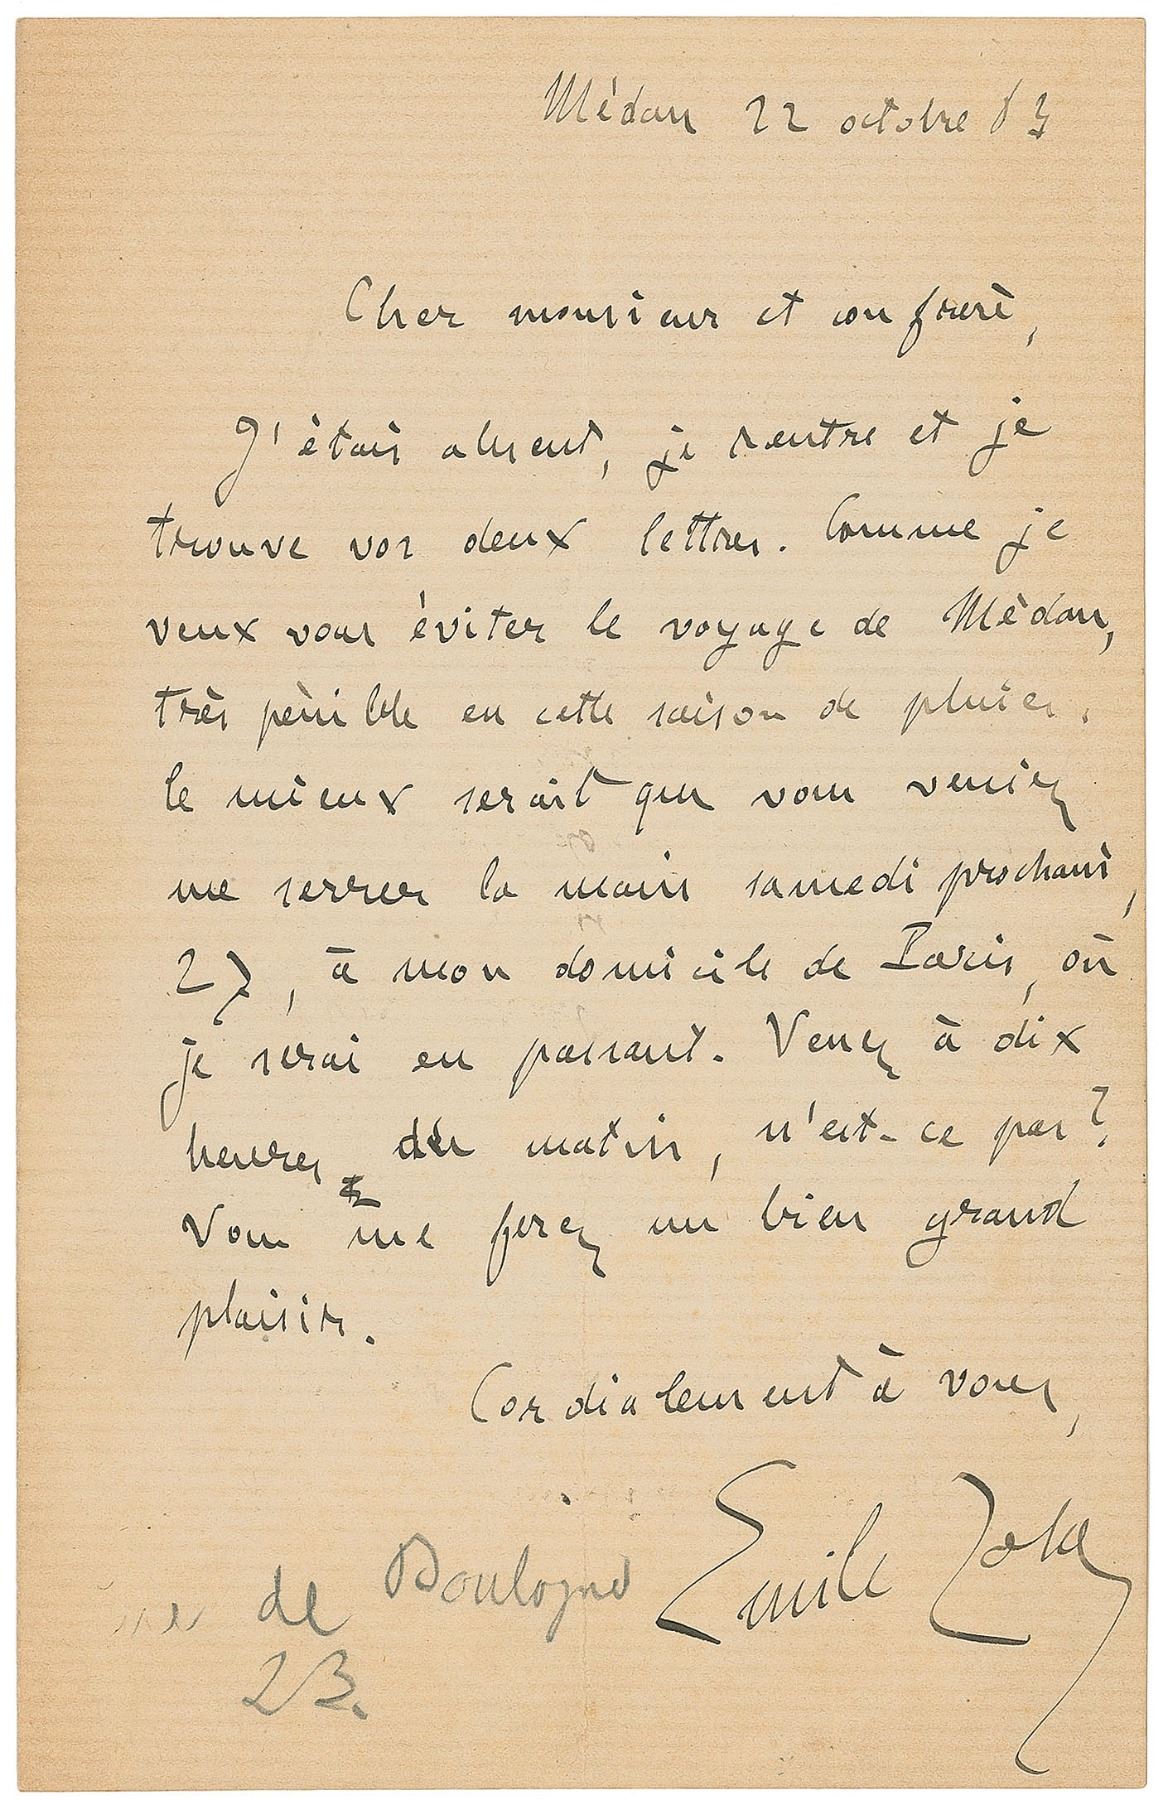 Médan 22 octobre 83
Cher monsieur et confrère,
J'étais absent, je rentre et je
trouve vos deux lettres. Comme je
veux vous éviter le voyage de Médan,
très pénible en cette saison de pluies,
le mieux serait que vous veniez
me serrer la main samedi prochain,
27, à mon domicile de Paris, où
je serai en passant. Venez à dix
heures du matin, n'est-ce pas?
Vous me ferez un bien grand
plaisir.
Cordialement à vous,
Emile Zola
de Boulogne
23.